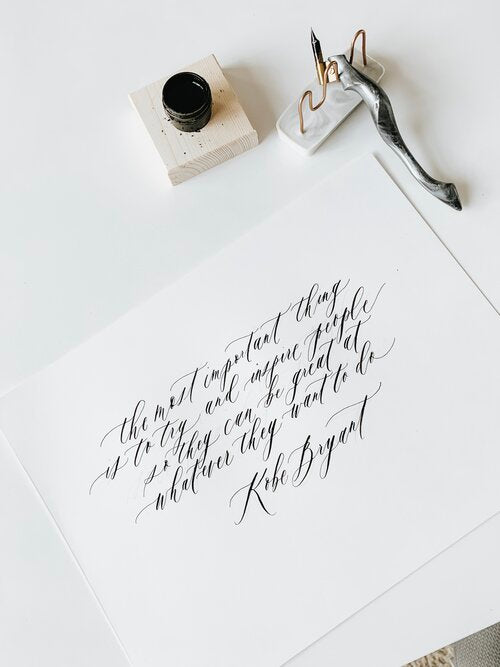 the most important thing
is to try and inspire people
so they can be great at
whatever they want to do
Kobe Bryant